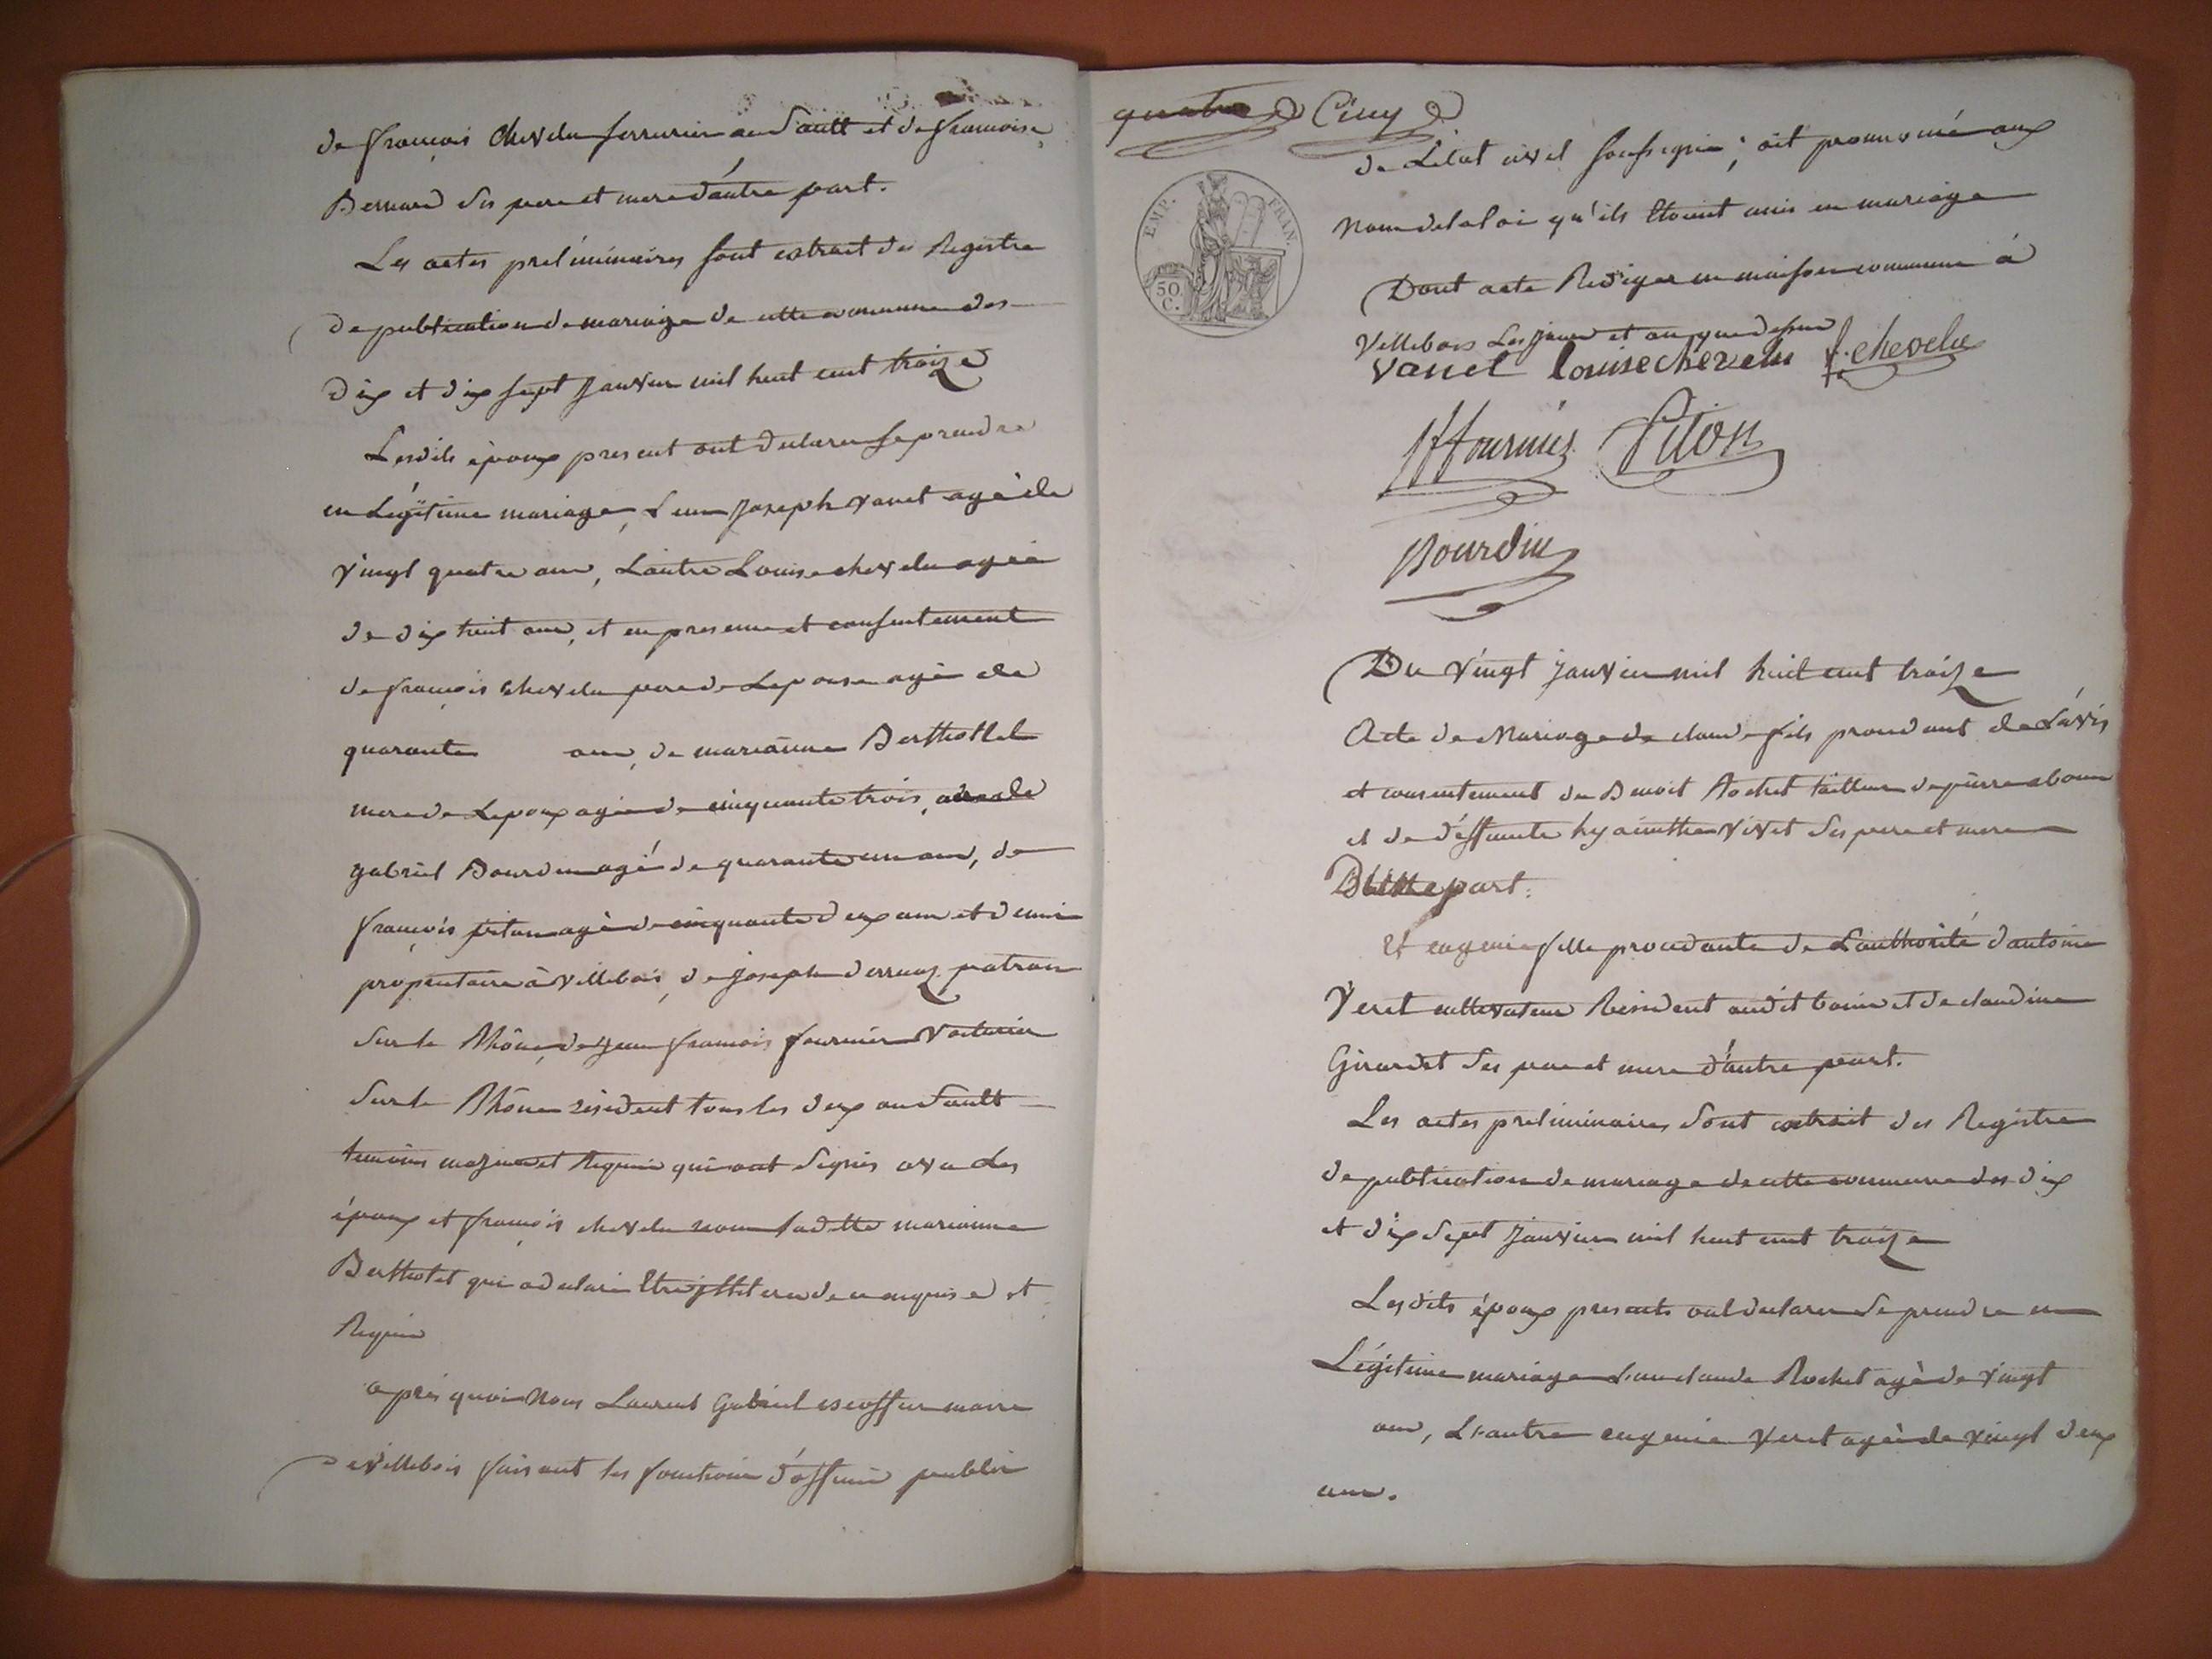 de françois chevelu serrurier au Sault et de francoise
Bernard ses pere et mere d'autre part.
Les actes preliminaires sont extrait des Registre
de publication de mariage de cette commune des
dix et dix sept janvier mil huit cent traize
Lesdits époux present ont declarer se prendre
en Légitime mariage, L'un Joseph vanet agé de
vingt quatre ans, L'autre Louise chevelu agée
de dix huit ans, et en presence et consentement
de françois chevelu pere de Lepouse agé de
quarante ans, de marianne Berthollet
mere de Lepoux agée de cinquante trois, de
gabriel Bourdin agé de quarante un ans, de
françois piton agé de cinquante deux ans et demi
propriétaire à villebois, de joseph patron
sur le Rhône, de jean francois fournier voiturier
sur le Rhône résident tous les deux au Sault
temoins majeur et Requis qui ont signés avec Les
époux et françois chevelu non laditte marianne
Berthotet qui a declaré Etre illiterée de ce enquise et
Requise
après quoi Nous Laurent Gabriel escoffier maire
de villebois faisant les fonctions d'officier public
quatre Cinq
de L'état civil soussigné, ait prononcé aux
Nom de la loi qu'ils Etoient unis en mariage
Dont acte Rediger en maison commune à
Villebois Les jour et an que dessus
Vanet louise chevelu f. chevelu
Jf fournier Piton
Bourdin
EMP. FRAN.
50 C.
Du vingt janvier mil huit cent traize
Acte de Mariage de claude fils procedant de L'avis
et consentement de Benoit Rochet tailleur de pierre a bouis
et de deffunte hyacinthe vivet ses pere et mere
D'une part.
Et eugenie fille procedante de L'authorité d'antoine
Veret cultivateur Résident audit bouis et de claudine
Girardet ses pere et mere d'autre part.
Les actes preliminaires sont extrait des Registre
de publication de mariage de cette commune des dix
et dix sept janvier mil huit cent traize
Lesdits époux presents ont declarer se prendre en
Légitime mariage L'un claude Rochet agé de vingt
ans, L'autre eugenie Veret agée de vingt deux
ans.